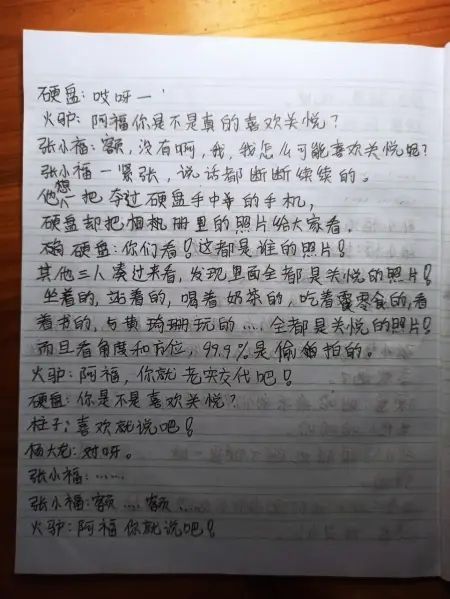 硬盘：哎呀一'
火驴：阿福你是不是真的喜欢关悦？
张小福：额，没有啊，我，我怎么可能喜欢关悦呢？
张小福一紧张，说话都断断续续的。
他想一把夺过硬盘手中的手机，
硬盘却把相机册里的照片给大家看。
硬盘：你们看！这都是谁的照片！
其他三人凑过来看，发现里面全都是关悦的照片！
坐着的，站着的，喝着奶茶的，吃着零食的，看
着书的，与黄琦珊玩的....全都是关悦的照片！
而且看角度和方位，99.9%是偷拍的。
火驴：阿福，你就老实交代吧！
硬盘：你是不是喜欢关悦？
柱子：喜欢就说吧！
杨大龙：对呀。
张小福：......
张小福：额....额.....
火驴：阿福你就说吧！